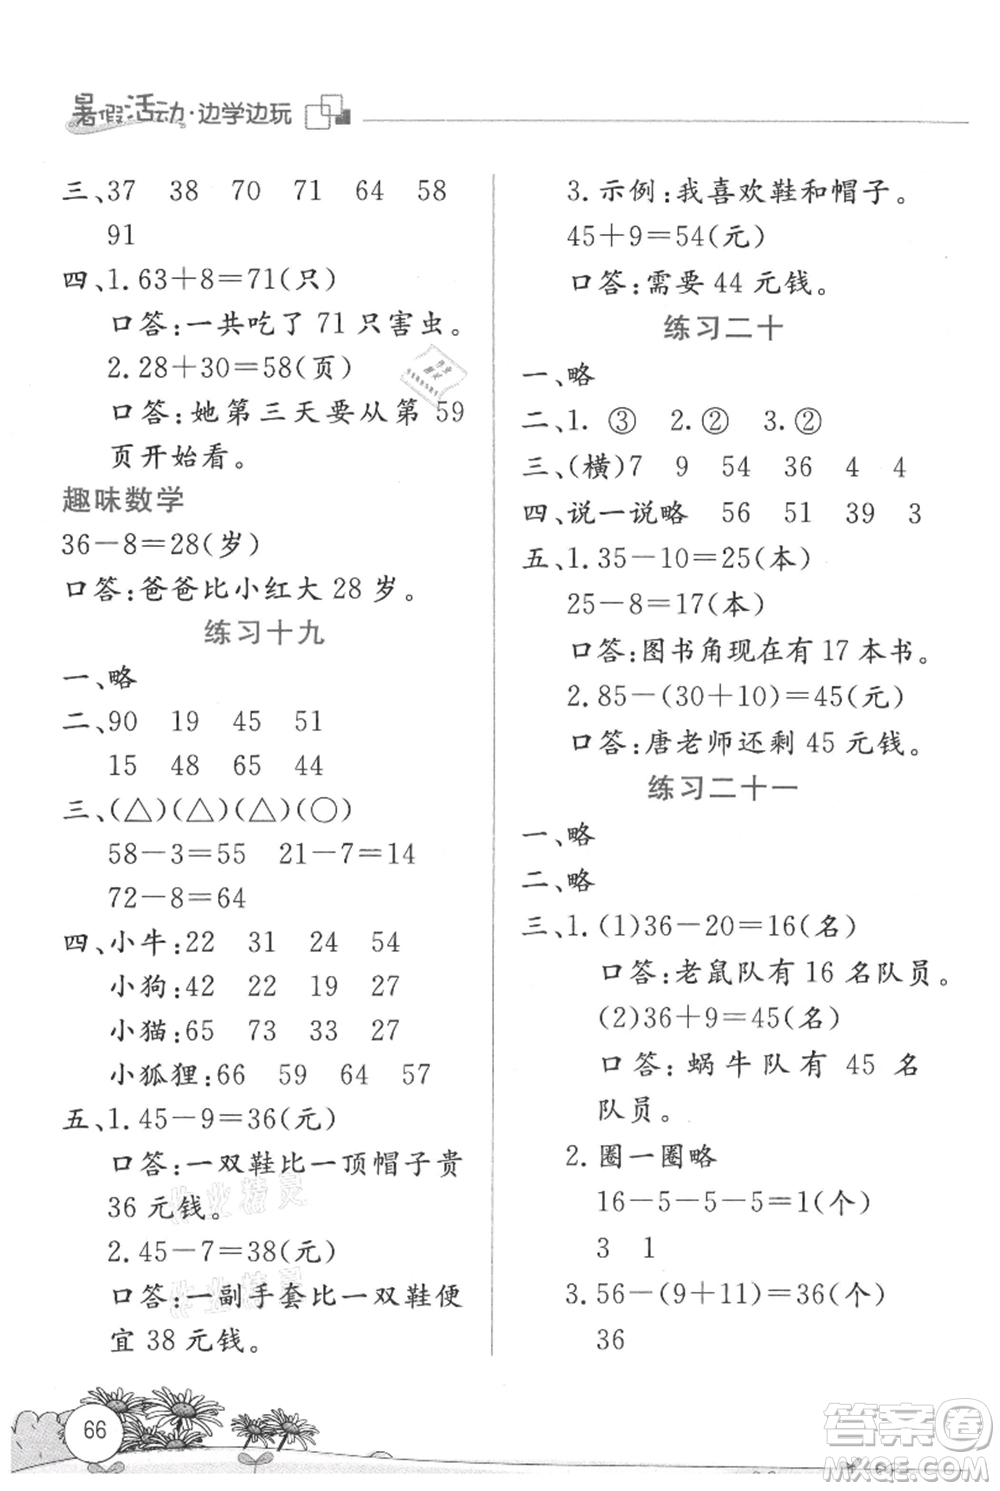 暑假活动·边学边玩
三、37 38 70 71 64 58
91
四、1.63+8=71(只)
口答:一共吃了 71 只害虫。
2.28+30=58(页)
口答:她第三天要从第 59
页开始看。
趣味数学
36-8=28(岁)
口答:爸爸比小红大 28 岁。
练习十九
一、略
二、90 19 45 51
15 48 65 44
三、(△)(△)(△)(○)
58-3=55 21-7=14
72-8=64
四、小牛:22 31 24 54
小狗:42 22 19 27
小猫:65 73 33 27
小狐狸:66 59 64 57
五、1.45-9=36(元)
口答:一双鞋比一顶帽子贵
36 元钱。
2.45-7=38(元)
口答:一副手套比一双鞋便
宜 38 元钱。
3.示例:我喜欢鞋和帽子。
45+9=54(元)
口答:需要 44 元钱。
练习二十
一、略
二、1. ③ 2.② 3.②
三、(横)7 9 54 36 4 4
四、说一说略 56 51 39 3
五、1.35-10=25(本)
25-8=17(本)
口答:图书角现在有 17 本书。
2.85-(30+10)=45(元)
口答:唐老师还剩 45 元钱。
练习二十一
一、略
二、略
三、1.(1)36-20=16(名)
口答:老鼠队有 16 名队员。
(2)36+9=45(名)
口答:蜗牛队有 45 名
队员。
2.圈一圈略
16-5-5-5=1(个)
3 1
3.56-(9+11)=36(个)
36
66
作业精灵
作业精灵
答案圈